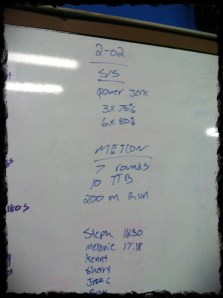 2-02
S/S
Power Jerk
3 x 75%
6 x 80%
METCON
7 rounds
10 TTB
200 m Run
Steph 16:30
Melanie 17:18
Kenny
Sherry